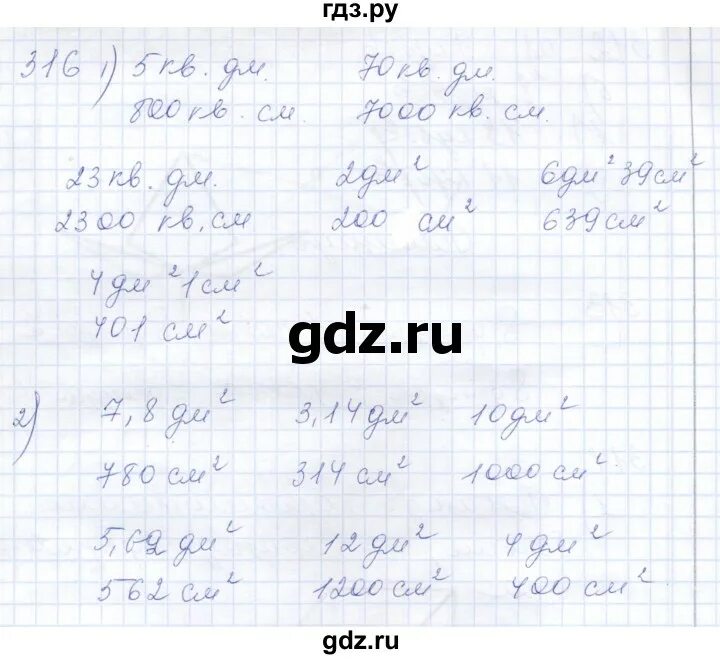 гдз.ру
316 1) 5 кв. дм. 70 кв. дм.
800 кв. см. 7000 кв. см.
23 кв. дм. 2 дм² 6 дм² 39 см²
2300 кв. см 200 см² 639 см²
4 дм² 1 см²
401 см²
gdz.ru
2) 7,8 дм² 3,14 дм² 10 дм²
780 см² 314 см² 1000 см²
5,62 дм² 12 дм² 4 дм²
562 см² 1200 см² 400 см²
gdz.ru